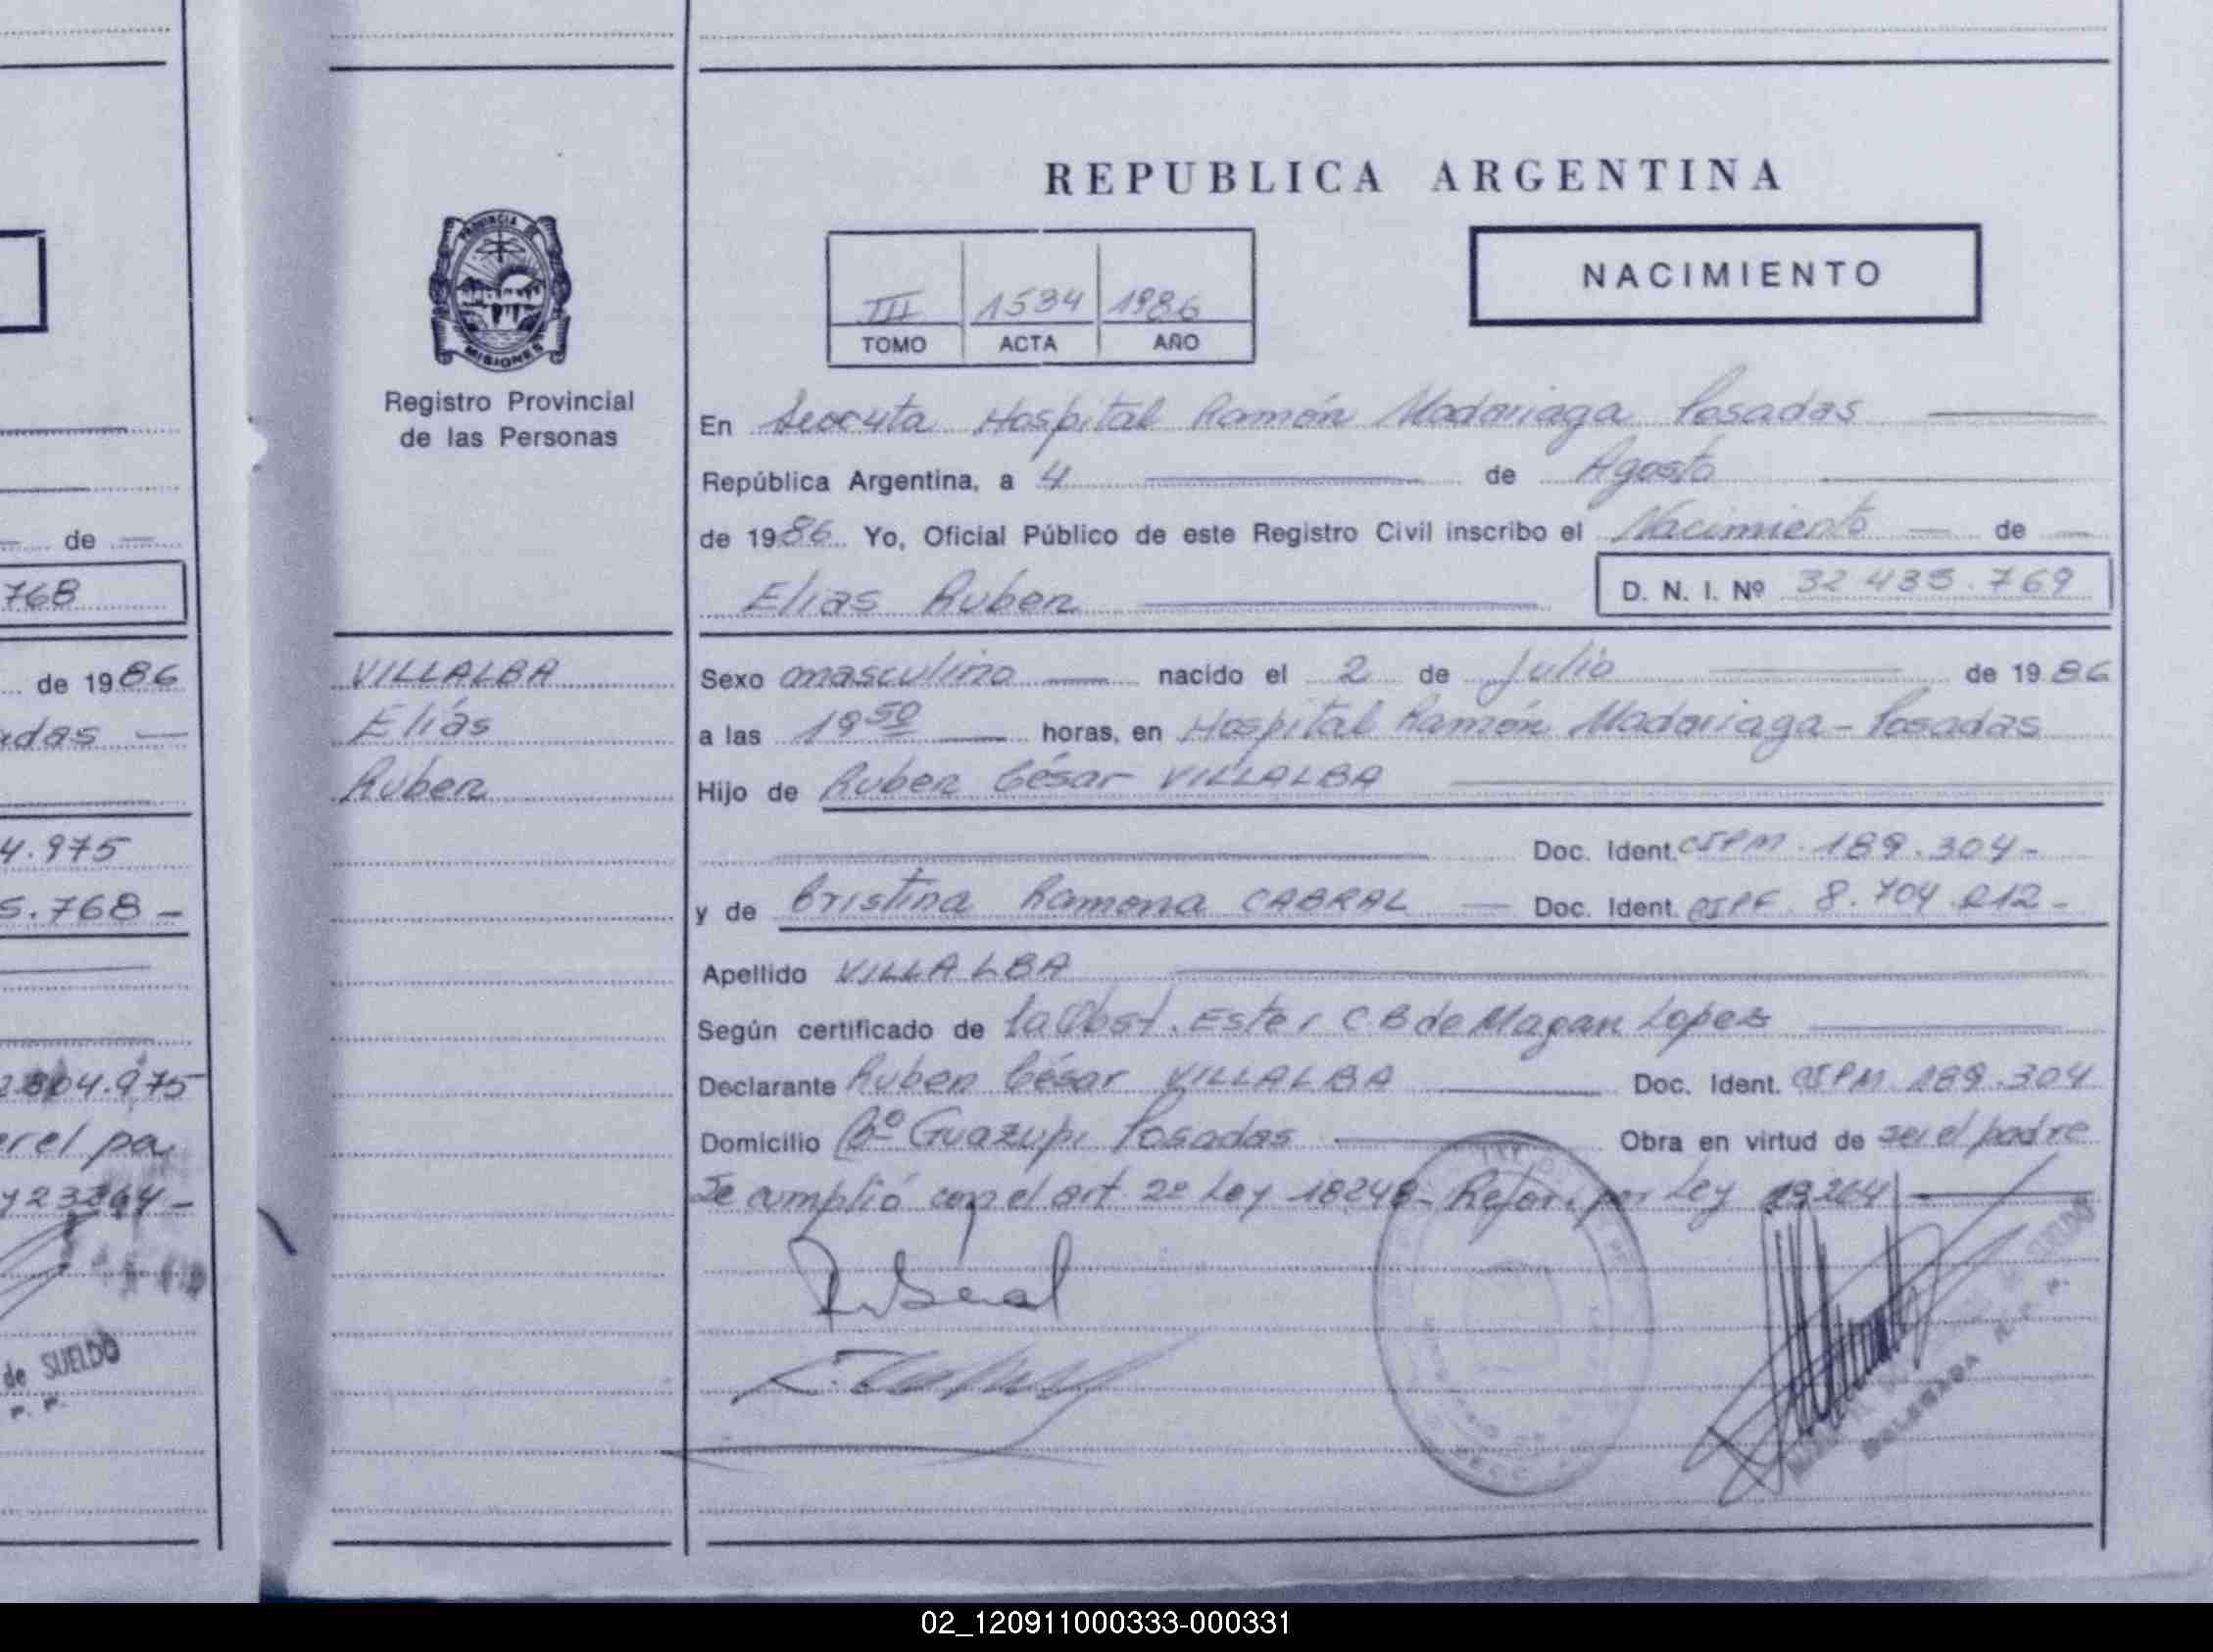 REPUBLICA ARGENTINA
NACIMIENTO
III 1534 1986
TOMO ACTA AÑO
PROVINCIA DE
MISIONES
Registro Provincial
de las Personas
En Hospital Ramón Madariaga Posadas
República Argentina, a 4 de Agosto
de 1986 Yo, Oficial Público de este Registro Civil inscribo el Nacimiento de
Elias Ruben D. N. I. Nº 32 435.769
VILLALBA
Elías
Ruben
Sexo masculino nacido el 2 de Julio de 1986
a las 19 50 horas, en Hospital Ramón Madariaga - Posadas
Hijo de Ruben César VILLALBA
Doc. Ident. CIPM. 189.304-
y de Cristina Ramona CABRAL Doc. Ident. CIPF. 8.704.212-
Apellido VILLALBA
Según certificado de la Obst. Ester C B de Magan Lopez
Declarante Ruben César VILLALBA Doc. Ident. CIPM 189.304
Domicilio Bº Guazupi Posadas Obra en virtud de ser el padre
Se cumplió con el art. 2º Ley 18248- Refor. por Ley 23264
DELEGADA R. P. P.
de
768
de 1986
adas
4.975
5.768-
804.975
er el pa
y 23264-
de SUELDO
P. P.
02_120911000333-000331